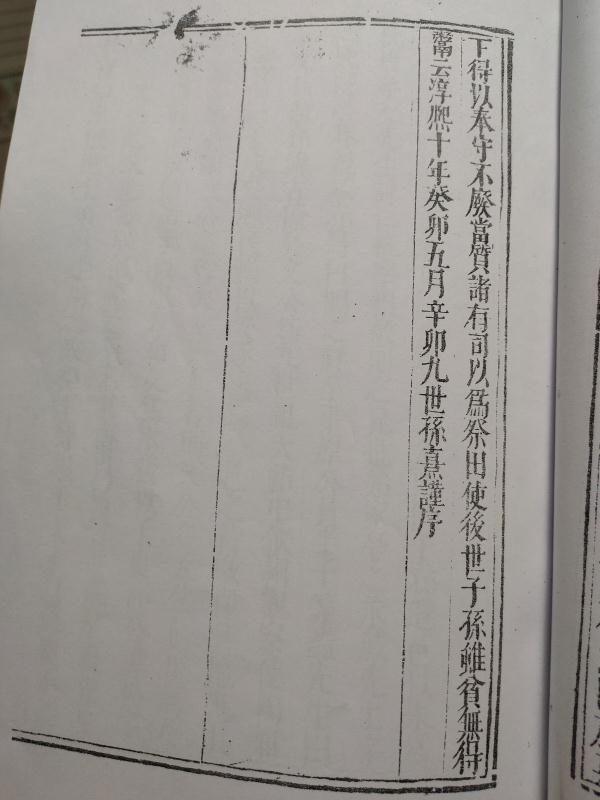 下得以奉守不廢當質諸有司以爲祭田使後世子孫雖貧無得
鬻云淳熙十年癸卯五月辛卯九世孫熹謹序